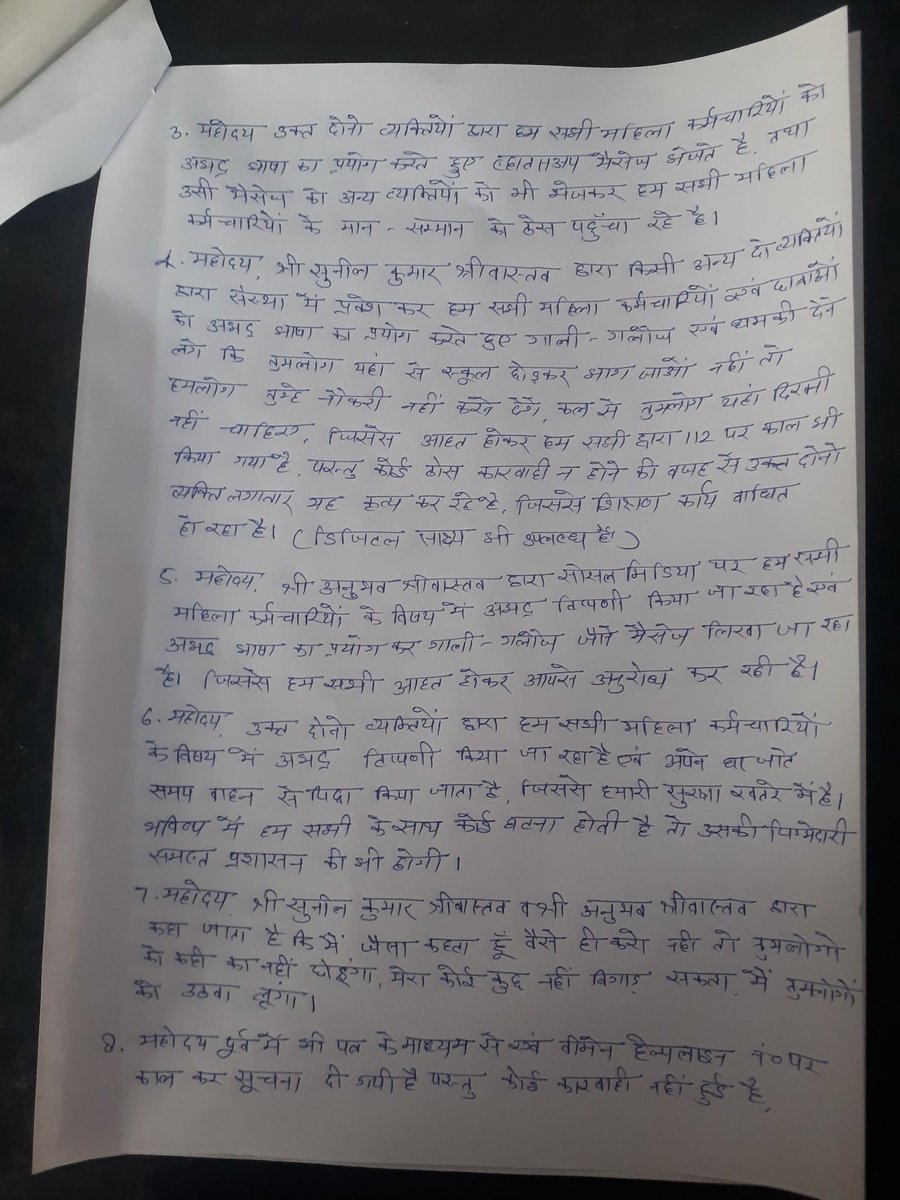 3. महोदय उक्त दोनो व्यक्तियों द्वारा हम सभी महिला कर्मचारियों को
अभद्र भाषा का प्रयोग करते हुए व्हाटसअप मैसेज भेजते है, तथा
उसी मैसेज को अन्य व्यक्तियों को भी भेजकर हम सभी महिला
कर्मचारियों के मान - सम्मान को ठेस पहुँचा रहे है।
4. महोदय, श्री सुनील कुमार श्रीवास्तव द्वारा किसी अन्य दो व्यक्तियों
द्वारा संस्था में प्रवेश कर हम सभी महिला कर्मचारियों एवं छात्राओं
को अभद्र भाषा का प्रयोग करते हुए गाली - गलौज एवं धमकी देने
लगे कि तुमलोग यहां से स्कूल छोड़कर भाग जाओं नहीं तो
हमलोग तुम्हे नौकरी नहीं करने देंगे, कल से तुमलोग यहां दिखनी
नहीं चाहिए, जिससे आहत होकर हम सभी द्वारा 112 पर काल भी
किया गया है, परन्तु कोई ठोस कारवाही न होने की वजह से उक्त दोनो
व्यक्ति लगातार यह कृत्य कर रहे है, जिससे शिक्षण कार्य बाधित
हो रहा है। (डिजिटल साक्ष्य भी उपलब्ध है)
5. महोदय, श्री अनुभव श्रीवास्तव द्वारा सोसल मिडिया पर हम सभी
महिला कर्मचारियों के विषय में अभद्र टिप्पणी किया जा रहा है एवं
अभद्र भाषा का प्रयोग कर गाली - गलौज जैसे मैसेज लिखा जा रहा
है। जिससे हम सभी आहत होकर आपसे अनुरोध कर रही है।
6. महोदय, उक्त दोनो व्यक्तियों द्वारा हम सभी महिला कर्मचारियों
के विषय में अभद्र टिप्पणी किया जा रहा है एवं अपने घर जाते
समय वाहन से पिछा किया जाता है, जिससे हमारी सुरक्षा खतरे में है।
भविष्य में हम सभी के साथ कोई घटना होती है तो उसकी जिम्मेदारी
समस्त प्रशासन की भी होगी।
7. महोदय, श्री सुनील कुमार श्रीवास्तव व श्री अनुभव श्रीवास्तव द्वारा
कहा जाता है कि मैं जैसा कहता हूँ वैसे ही करो नही तो तुमलोगो
को कही का नहीं छोड़ूंगा, मेरा कोई कुछ नहीं बिगाड़ सकता, मैं तुमलोगों
को उठवा लूंगा।
8. महोदय पूर्व में भी पत्र के माध्यम से एवं वीमेन हेल्पलाइन नं० पर
काल कर सूचना दी गयी है परन्तु कोई कारवाही नहीं हुई है,